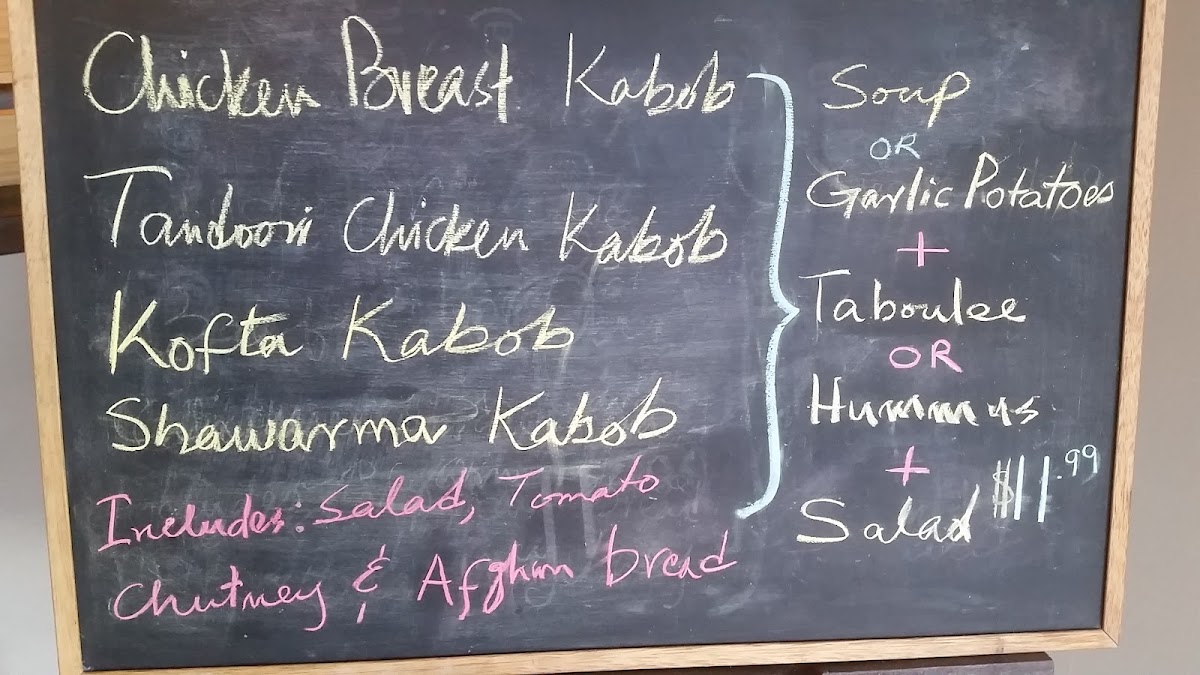 Chicken Breast Kabob
Tandoori Chicken Kabob
Kofta Kabob
Shawarma Kabob
Includes: Salad, Tomato
Chutney & Afghan bread
Soup
OR
Garlic Potatoes
+
Taboulee
OR
Hummus
+
Salad $11.99